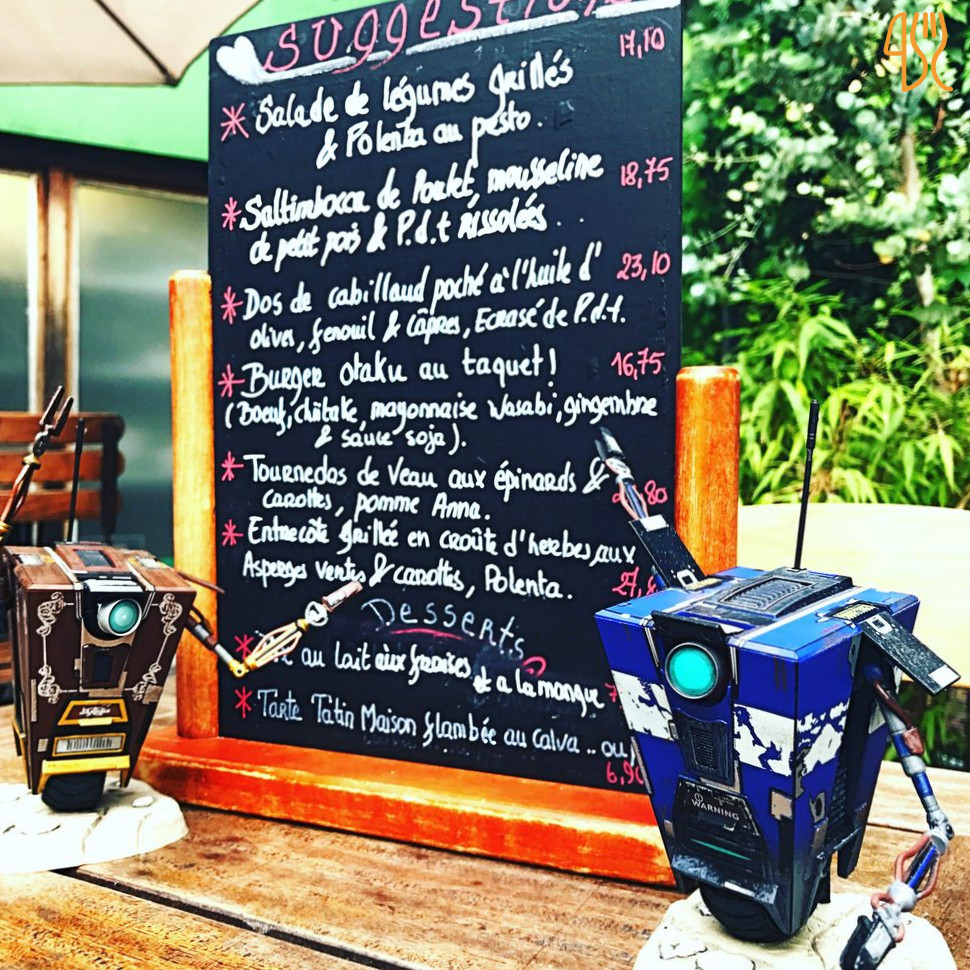 Suggestions
17,10
* Salade de légumes grillés
& Polenta au pesto.
* Saltimbocca de Poulet, mousseline 18,75
de petit pois & P.d.t rissolées..
* Dos de cabillaud poché à l'huile d' 23,10
olives, fenouil & câpres, Ecrasé de P.d.t.
* Burger otaku au taquet! 16,75
(Boeuf, chiitake, mayonnaise wasabi, gingembre
& sauce soja).
* Tournedos de Veau aux épinards &
carottes, pomme Anna. 80
* Entrecôte grillée en croûte d'herbes, aux
Asperges vertes & carottes, Polenta. 27,8
Desserts
* au lait aux fraises et a la mangue
* Tarte Tatin Maison flambée au calva .. ou
6,90
WARNING